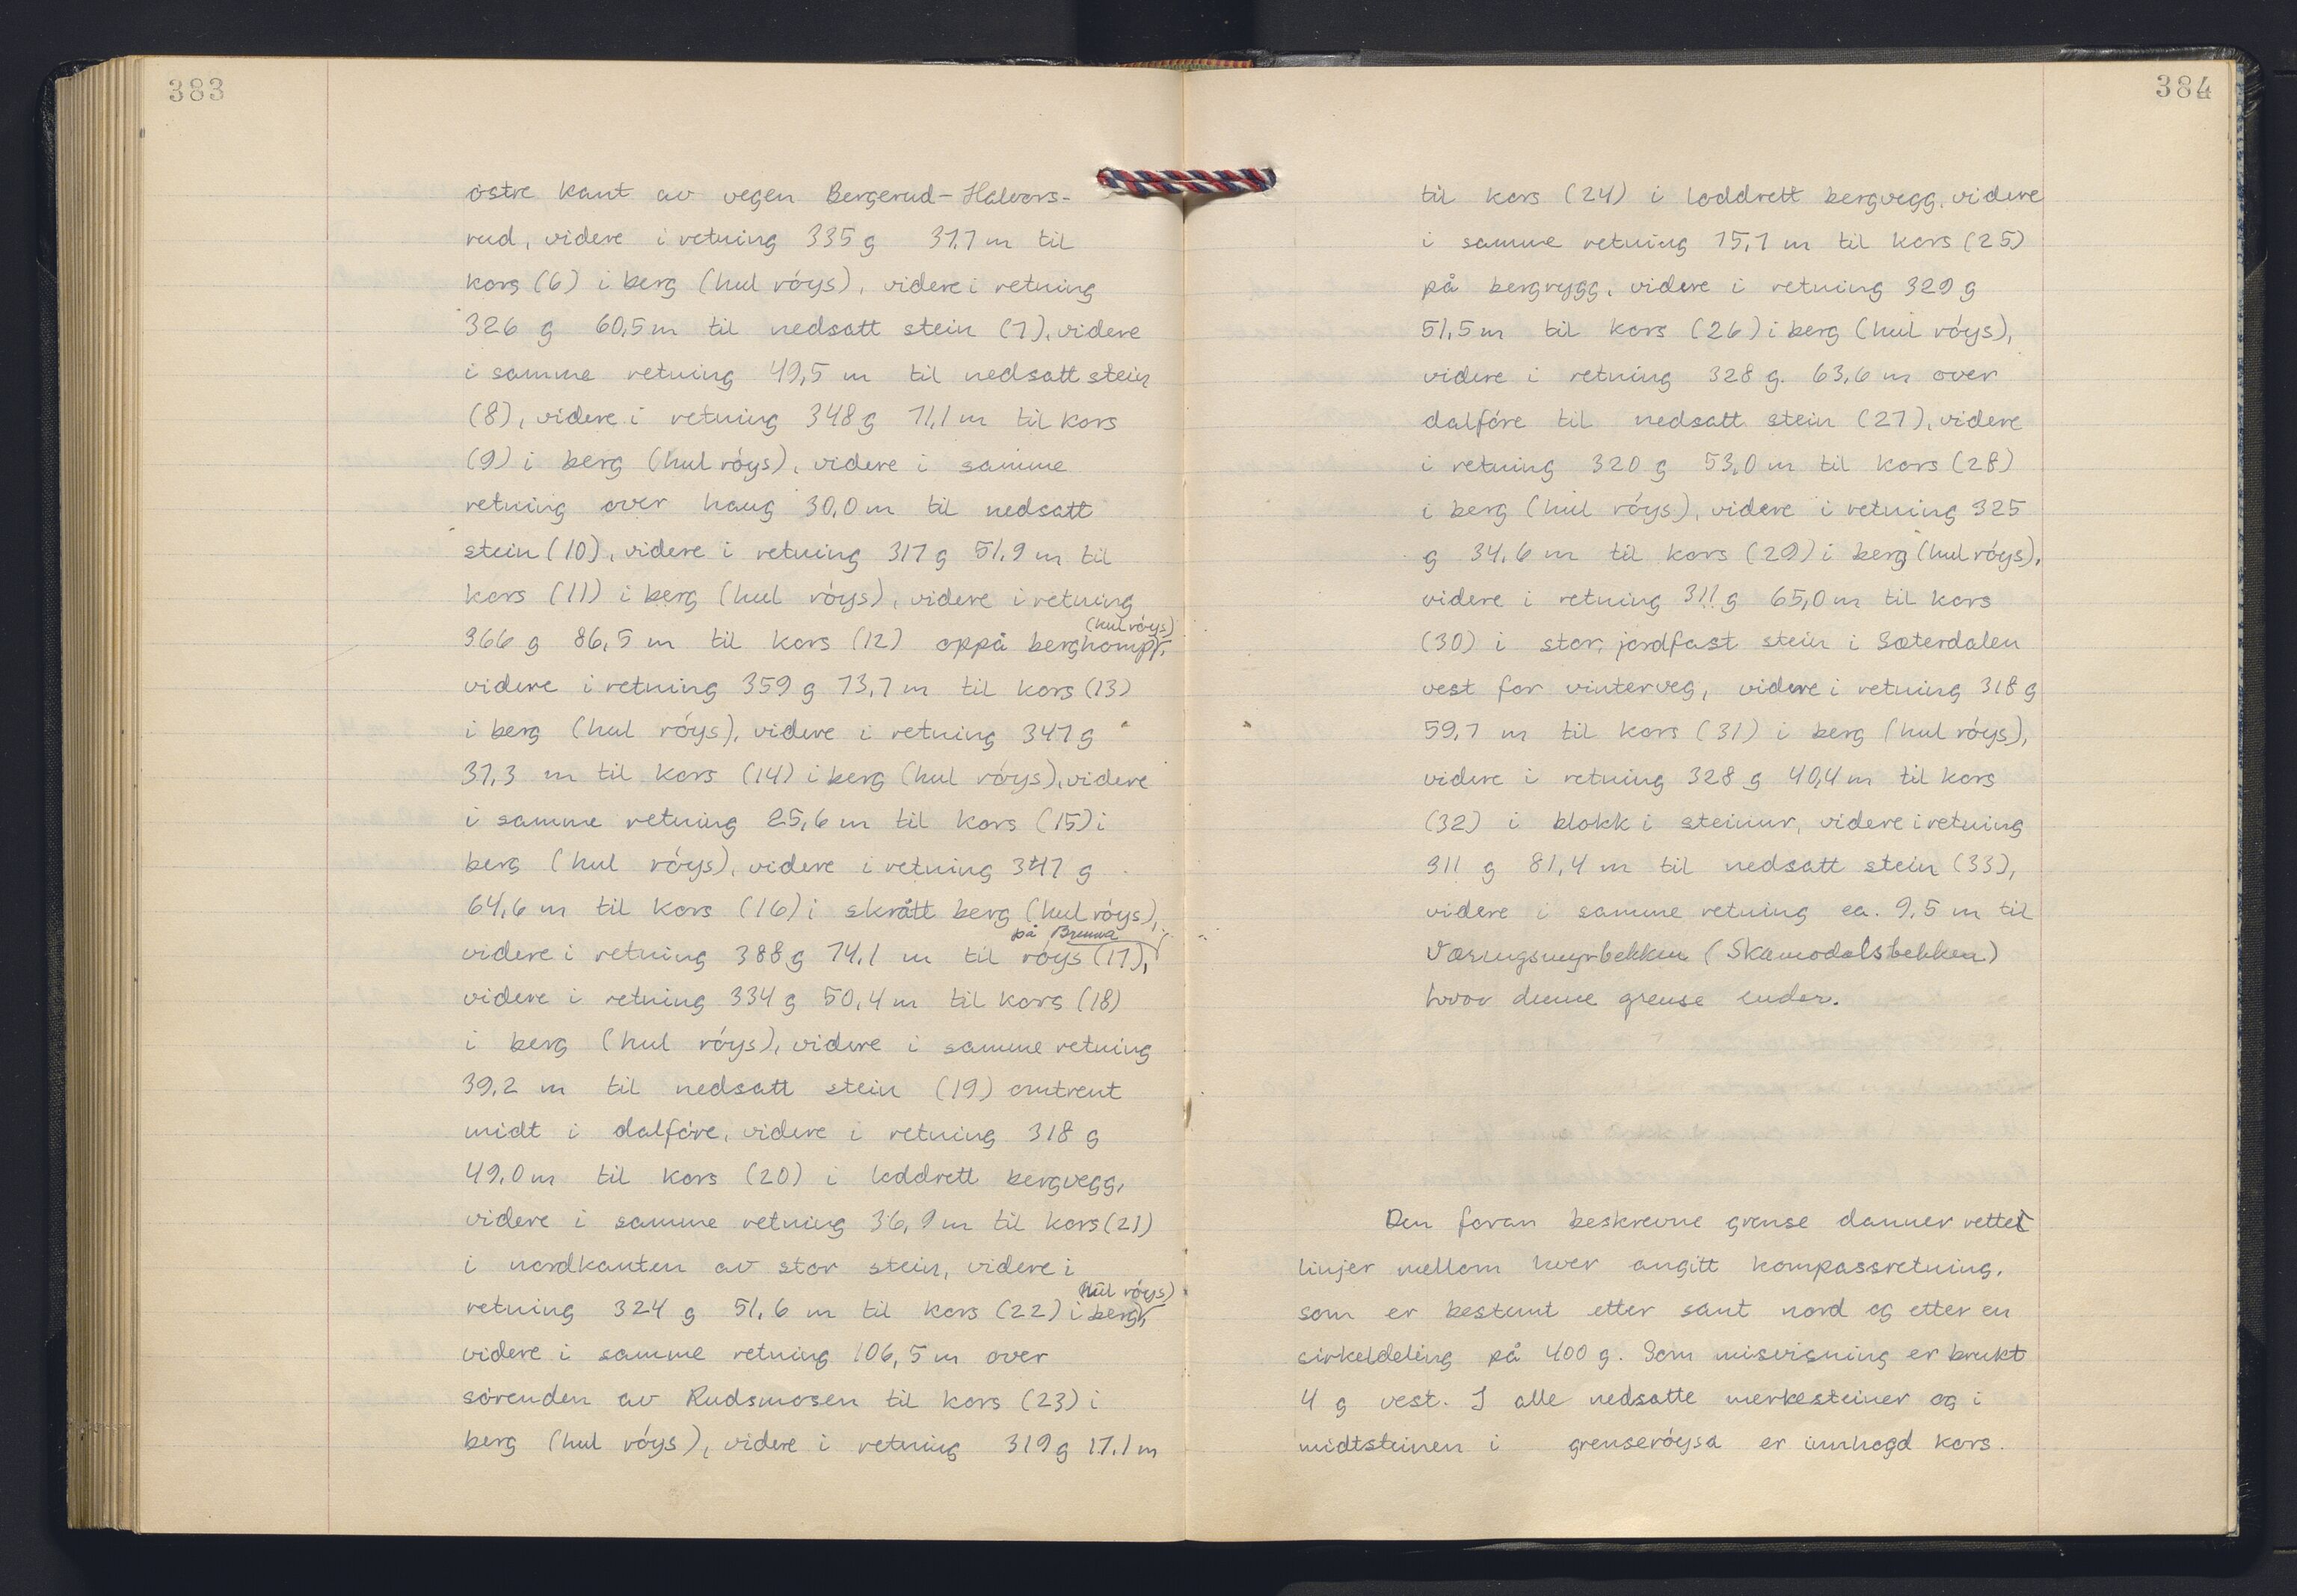 383
østre kant av vegen Bergerud-Halvors-
rud, videre i retning 335 g 37,7 m til
kors (6) i berg (hul røys), videre i retning
326 g 60,5 m til nedsatt stein (7), videre
i samme retning 49,5 m til nedsatt stein
(8), videre i retning 348 g 71,1 m til kors
(9) i berg (hul røys), videre i samme
retning over haug 30,0 m til nedsatt
stein (10), videre i retning 317 g 51,9 m til
kors (11) i berg (hul røys), videre i retning
(hul røys)
366 g 86,5 m til kors (12) oppå berghomp,
videre i retning 359 g 73,7 m til kors (13)
i berg (hul røys), videre i retning 347 g
37,3 m til kors (14) i berg (hul røys), videre
i samme retning 25,6 m til kors (15) i
berg (hul røys), videre i retning 347 g
64,6 m til kors (16) i skrått berg (hul røys),
på Brenna
videre i retning 388 g 74,1 m til røys (17),
videre i retning 334 g 50,4 m til kors (18)
i berg (hul røys), videre i samme retning
39,2 m til nedsatt stein (19) omtrent
midt i dalføre, videre i retning 318 g
49,0 m til kors (20) i loddrett bergvegg,
videre i samme retning 36,9 m til kors (21)
i nordkanten av stor stein, videre i
(hul røys)
retning 324 g 51,6 m til kors (22) i berg,
videre i samme retning 106,5 m over
sørenden av Rudsmosen til kors (23) i
berg (hul røys), videre i retning 319 g 17,1 m
384
til kors (24) i loddrett bergvegg, videre
i samme retning 15,7 m til kors (25)
på bergrygg, videre i retning 329 g
51,5 m til kors (26) i berg (hul røys),
videre i retning 328 g. 63,6 m over
dalføre til nedsatt stein (27), videre
i retning 320 g 53,0 m til kors (28)
i berg (hul røys), videre i retning 325
g 34,6 m til kors (29) i berg (hul røys),
videre i retning 311 g 65,0 m til kors
(30) i stor, jordfast stein i Sæterdalen
vest for vinterveg, videre i retning 318 g
59,7 m til kors (31) i berg (hul røys),
videre i retning 328 g 40,4 m til kors
(32) i blokk i steinur, videre i retning
311 g 81,4 m til nedsatt stein (33),
videre i samme retning ca. 9,5 m til
Væringsmyrbekken (Skamodalsbekken)
hvor denne grense ender.
Den foran beskrevne grense danner rette
linjer mellom hver angitt kompassretning,
som er bestemt etter sant nord og etter en
sirkeldeling på 400 g. Som misvisning er brukt
4 g vest. I alle nedsatte merkesteiner og i
midtsteinen i grenserøysa er innhogd kors.